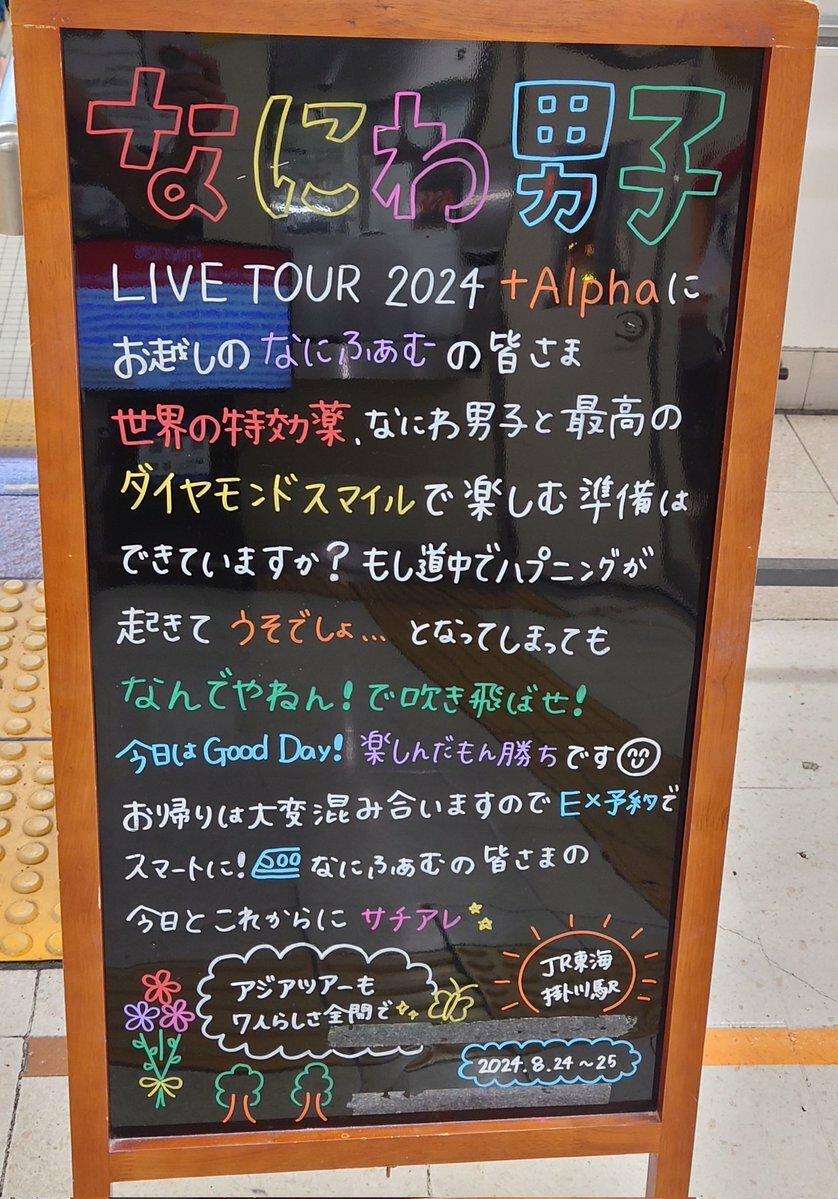 なにわ男子
LIVE TOUR 2024 +Alphaに
お越しのなにふぁむの皆さま
世界の特効薬、なにわ男子と最高の
ダイヤモンドスマイルで楽しむ準備は
できていますか?もし道中でハプニングが
起きて うそでしょ… となってしまっても
なんでやねん!で吹き飛ばせ!
今日はGood Day! 楽しんだもん勝ちです
お帰りは大変混み合いますのでEX予約で
スマートに! なにふぁむの皆さまの
今日とこれからに サチアレ
アジアツアーも
7人らしさ全開で
JR東海
掛川駅
2024.8.24~25